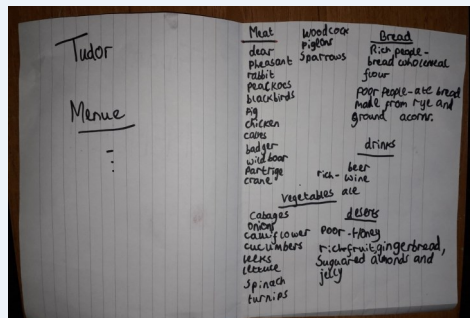 Tudor
Menue
Meat
dear
pheasant
rabbit
peackoes
blackbirds
pig
chicken
badger
wild boar
partrige
crane
Woodcock
pigeons
Sparrows
Bread
Rich people -
bread wholemeal
flour
poor people - ate bread
made from rye and
ground acorns.
drinks
beer
rich - wine
ale
vegetables
Cabages
onions
cauliflower
cucumbers
leeks
lettuce
spinach
turnips
deserts
poor - Honey
rich fruit, gingerbread,
Suguared almonds and
jelly